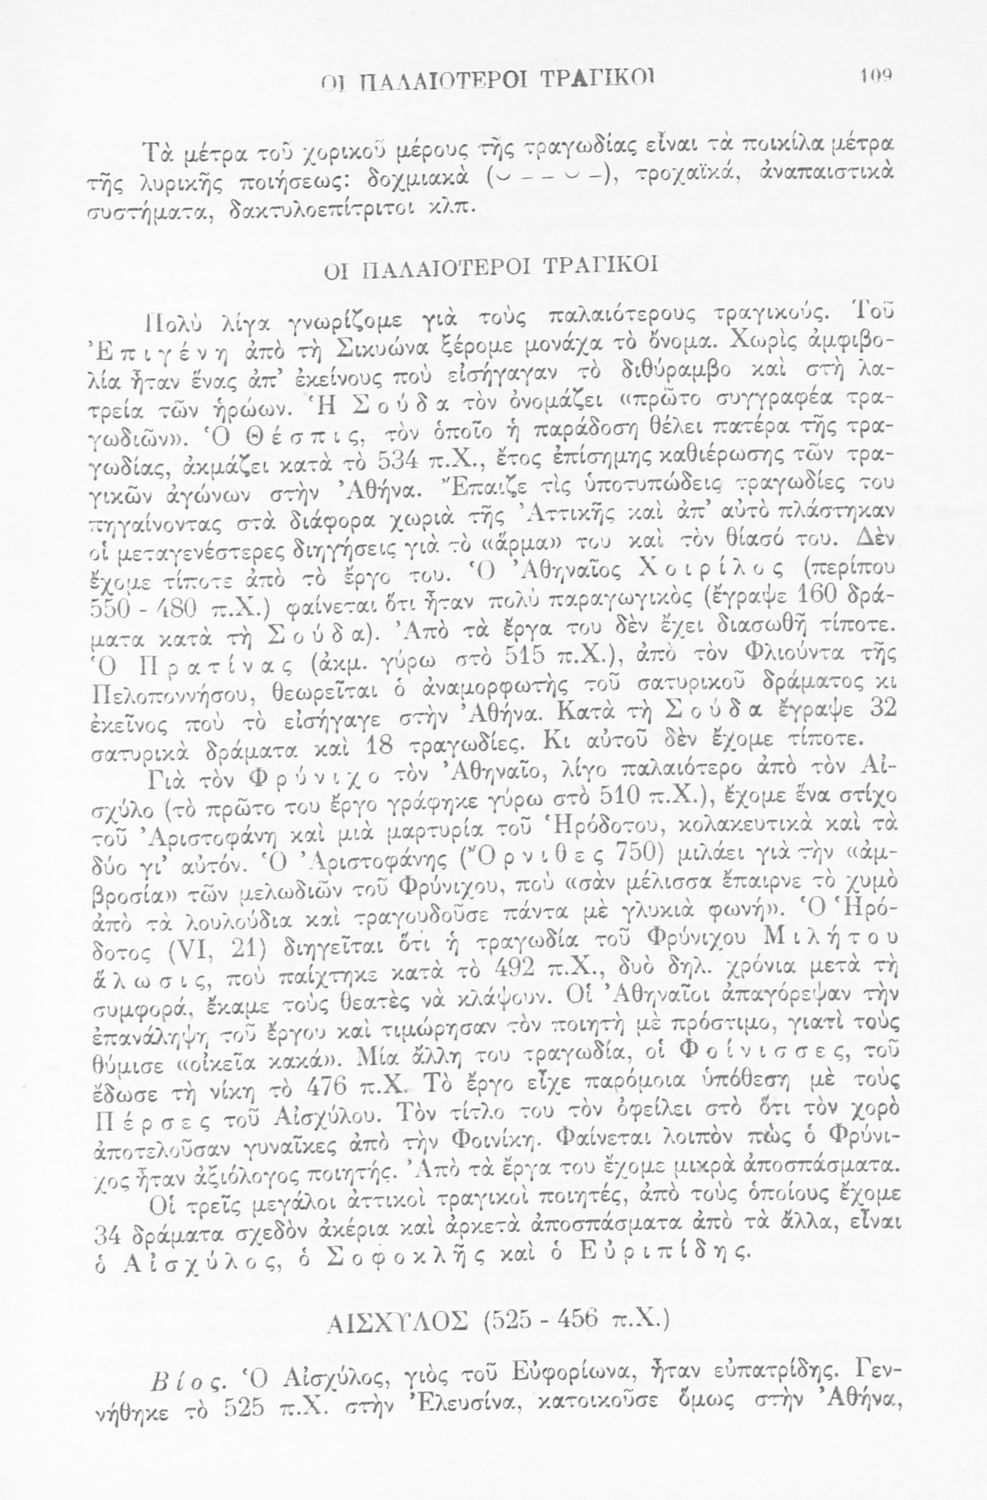 ΟΙ ΠΑΛΑΙΟΤΕΡΟΙ ΤΡΑΓΙΚΟΙ 109
Τὰ μέτρα τοῦ χορικοῦ μέρους τῆς τραγωδίας εἶναι τὰ ποικίλα μέτρα
τῆς λυρικῆς ποιήσεως: δοχμιακὰ (⏑ – – ⏑ –), τροχαϊκά, ἀναπαιστικὰ
συστήματα, δακτυλοεπίτριτοι κλπ.
ΟΙ ΠΑΛΑΙΟΤΕΡΟΙ ΤΡΑΓΙΚΟΙ
Πολὺ λίγα γνωρίζομε γιὰ τοὺς παλαιότερους τραγικούς. Τοῦ
Ἐπιγένη ἀπὸ τὴ Σικυώνα ξέρομε μονάχα τὸ ὄνομα. Χωρὶς ἀμφιβο-
λία ἦταν ἕνας ἀπ’ ἐκείνους ποὺ εἰσήγαγαν τὸ διθύραμβο καὶ στὴ λα-
τρεία τῶν ἡρώων. Ἡ Σούδα τὸν ὀνομάζει «πρῶτο συγγραφέα τρα-
γωδιῶν». Ὁ Θέσπις, τὸν ὁποῖο ἡ παράδοση θέλει πατέρα τῆς τρα-
γωδίας, ἀκμάζει κατὰ τὸ 534 π.Χ., ἔτος ἐπίσημης καθιέρωσης τῶν τρα-
γικῶν ἀγώνων στὴν Ἀθήνα. Ἔπαιζε τὶς ὑποτυπώδεις τραγωδίες του
πηγαίνοντας στὰ διάφορα χωριὰ τῆς Ἀττικῆς καὶ ἀπ’ αὐτὸ πλάστηκαν
οἱ μεταγενέστερες διηγήσεις γιὰ τὸ «ἅρμα» του καὶ τὸν θίασό του. Δὲν
ἔχομε τίποτε ἀπὸ τὸ ἔργο του. Ὁ Ἀθηναῖος Χοιρίλος (περίπου
550 - 480 π.Χ.) φαίνεται ὅτι ἦταν πολὺ παραγωγικὸς (ἔγραψε 160 δρά-
ματα κατὰ τὴ Σούδα). Ἀπὸ τὰ ἔργα του δὲν ἔχει διασωθῆ τίποτε.
Ὁ Πρατίνας (ἀκμ. γύρω στὸ 515 π.Χ.), ἀπὸ τὸν Φλιούντα τῆς
Πελοποννήσου, θεωρεῖται ὁ ἀναμορφωτὴς τοῦ σατυρικοῦ δράματος κι
ἐκεῖνος ποὺ τὸ εἰσήγαγε στὴν Ἀθήνα. Κατὰ τὴ Σούδα ἔγραψε 32
σατυρικὰ δράματα καὶ 18 τραγωδίες. Κι αὐτοῦ δὲν ἔχομε τίποτε.
Γιὰ τὸν Φρύνιχο τὸν Ἀθηναῖο, λίγο παλαιότερο ἀπὸ τὸν Αἰ-
σχύλο (τὸ πρῶτο του ἔργο γράφηκε γύρω στὸ 510 π.Χ.), ἔχομε ἕνα στίχο
τοῦ Ἀριστοφάνη καὶ μιὰ μαρτυρία τοῦ Ἡρόδοτου, κολακευτικὰ καὶ τὰ
δύο γι’ αὐτόν. Ὁ Ἀριστοφάνης (Ὄρνιθες 750) μιλάει γιὰ τὴν «ἀμ-
βροσία» τῶν μελωδιῶν τοῦ Φρύνιχου, ποὺ «σὰν μέλισσα ἔπαιρνε τὸ χυμὸ
ἀπὸ τὰ λουλούδια καὶ τραγουδοῦσε πάντα μὲ γλυκιὰ φωνή». Ὁ Ἡρό-
δοτος (VI, 21) διηγεῖται ὅτι ἡ τραγωδία τοῦ Φρύνιχου Μιλήτου
ἅλωσις, ποὺ παίχτηκε κατὰ τὸ 492 π.Χ., δυὸ δηλ. χρόνια μετὰ τὴ
συμφορά, ἔκαμε τοὺς θεατὲς νὰ κλάψουν. Οἱ Ἀθηναῖοι ἀπαγόρεψαν τὴν
ἐπανάληψη τοῦ ἔργου καὶ τιμώρησαν τὸν ποιητὴ μὲ πρόστιμο, γιατὶ τοὺς
θύμισε «οἰκεῖα κακά». Μία ἄλλη του τραγωδία, οἱ Φοίνισσες, τοῦ
ἔδωσε τὴ νίκη τὸ 476 π.Χ. Τὸ ἔργο εἶχε παρόμοια ὑπόθεση μὲ τοὺς
Πέρσες τοῦ Αἰσχύλου. Τὸν τίτλο του τὸν ὀφείλει στὸ ὅτι τὸν χορὸ
ἀποτελοῦσαν γυναῖκες ἀπὸ τὴν Φοινίκη. Φαίνεται λοιπὸν πὼς ὁ Φρύνι-
χος ἦταν ἀξιόλογος ποιητής. Ἀπὸ τὰ ἔργα του ἔχομε μικρὰ ἀποσπάσματα.
Οἱ τρεῖς μεγάλοι ἀττικοὶ τραγικοὶ ποιητές, ἀπὸ τοὺς ὁποίους ἔχομε
34 δράματα σχεδὸν ἀκέρια καὶ ἀρκετὰ ἀποσπάσματα ἀπὸ τὰ ἄλλα, εἶναι
ὁ Αἰσχύλος, ὁ Σοφοκλῆς καὶ ὁ Εὐριπίδης.
ΑΙΣΧΥΛΟΣ (525 - 456 π.Χ.)
Βίος. Ὁ Αἰσχύλος, γιὸς τοῦ Εὐφορίωνα, ἦταν εὐπατρίδης. Γεν-
νήθηκε τὸ 525 π.Χ. στὴν Ἐλευσίνα, κατοικοῦσε ὅμως στὴν Ἀθήνα,